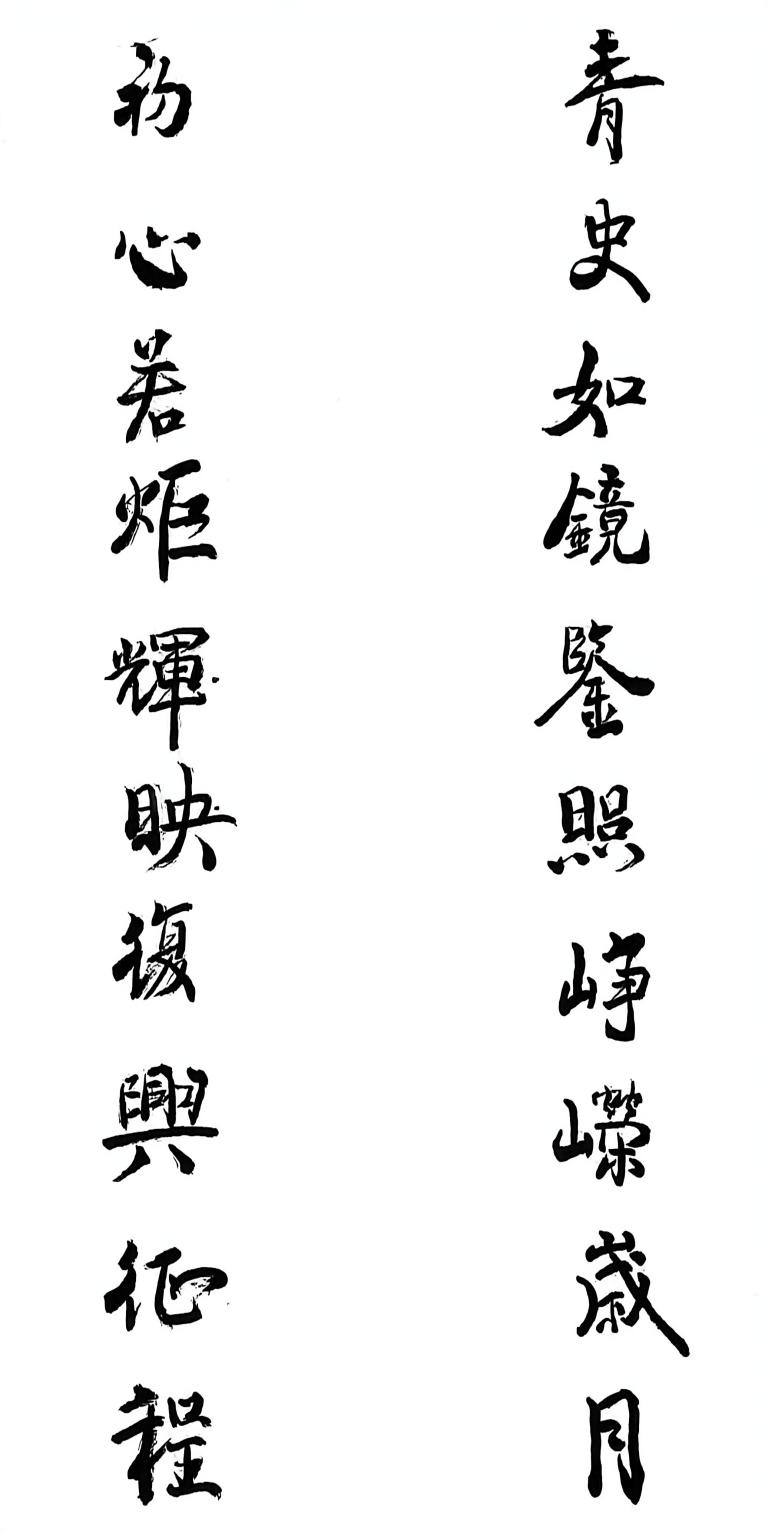 青史如鏡鑒照峥嶸歲月
初心若炬輝映復興征程